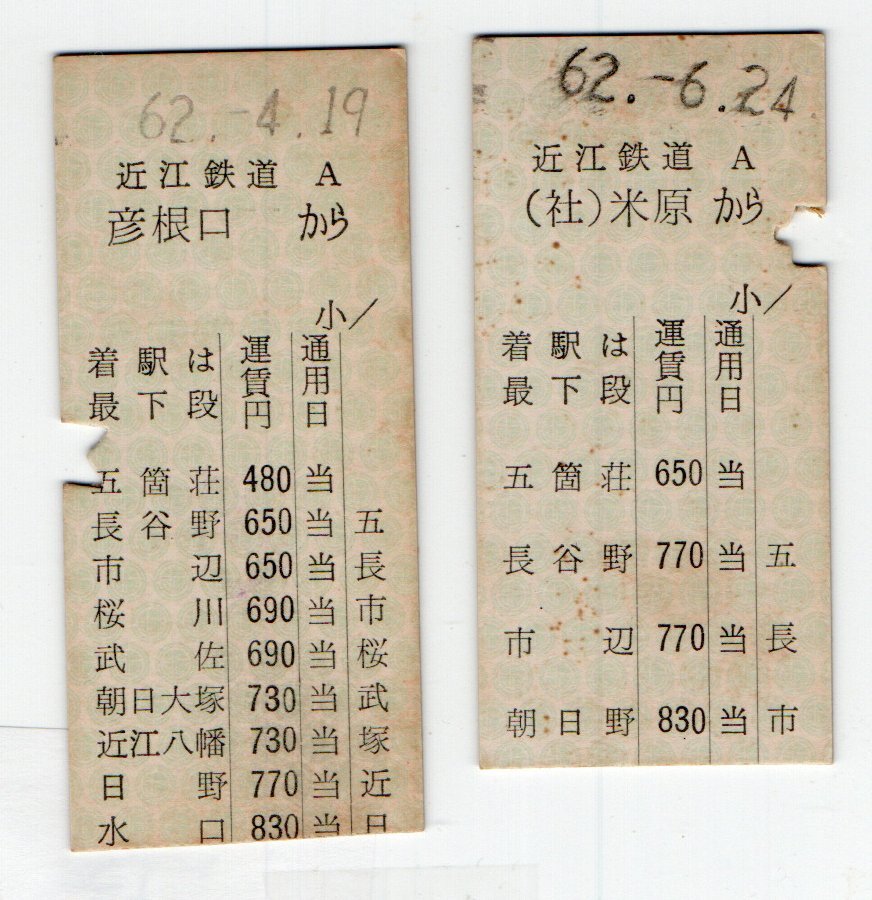 62.-4.19
近江鉄道 A
彦根口 から
小/
着駅は最下段 運賃円 通用日
五箇荘 480 当
長谷野 650 当 五
市辺 650 当 長
桜川 690 当 市
武佐 690 当 桜
朝日大塚 730 当 武
近江八幡 730 当 塚
日野 770 当 近
水口 830 当 日
62.-6.24
近江鉄道 A
(社)米原 から
小/
着駅は最下段 運賃円 通用日
五箇荘 650 当
長谷野 770 当 五
市辺 770 当 長
朝日野 830 当 市